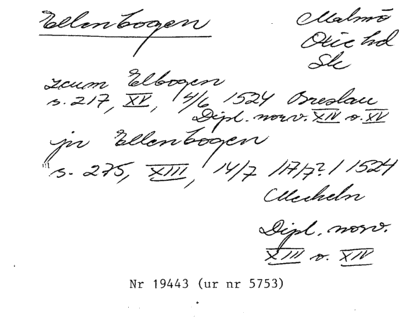 Ellenbogen
Malmö
Oxie hd
Sk
zcum Elbogen
s. 217, XV, 4/6 1524 Breslau
Dipl. norv. XIV o. XV
jn Ellenbogen
s. 275, XIII, 14/7 /17/7?/ 1524
Mecheln
Dipl. norv.
XIII o. XIV
Nr 19443 (ur nr 5753)